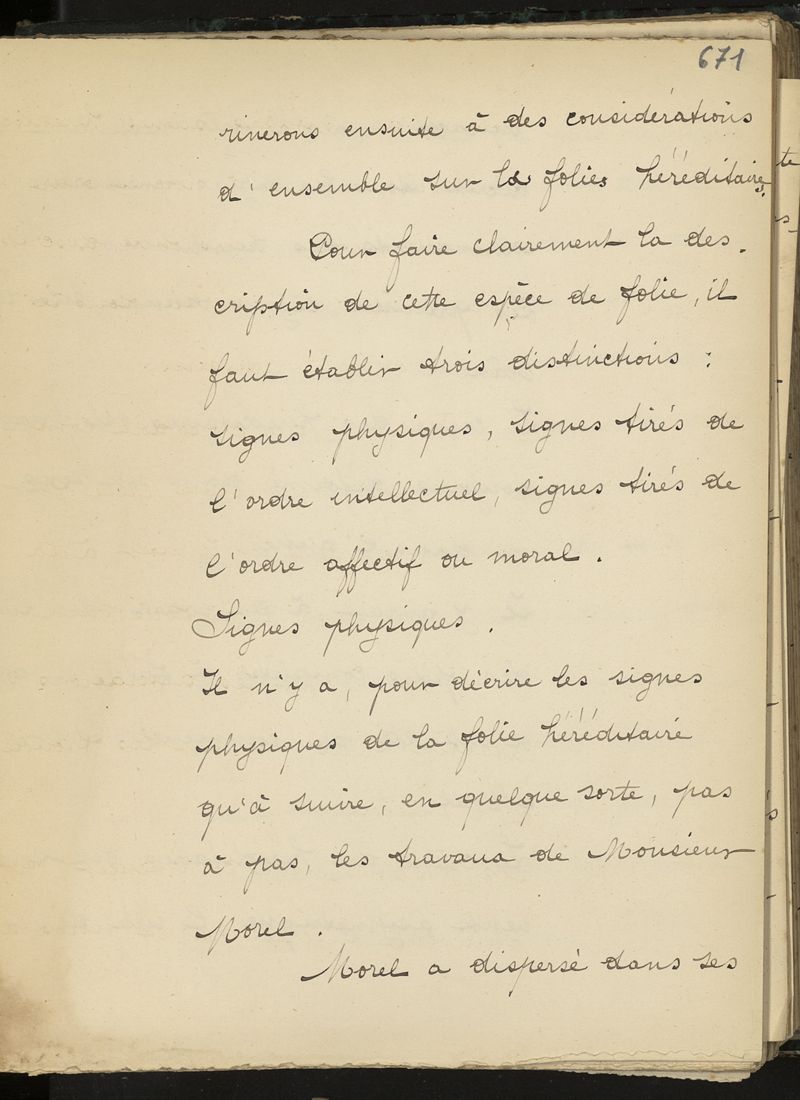 671
rinerons ensuite à des considérations
d'ensemble sur les folies héréditaires.
Pour faire clairement la des-
cription de cette espèce de folie, il
faut établir trois distinctions :
signes physiques, signes tirés de
l'ordre intellectuel, signes tirés de
l'ordre affectif ou moral.
Signes physiques.
Il n'y a, pour décrire les signes
physiques de la folie héréditaire
qu'à suivre, en quelque sorte, pas
à pas, les travaux de Monsieur
Morel.
Morel a dispersé dans ses